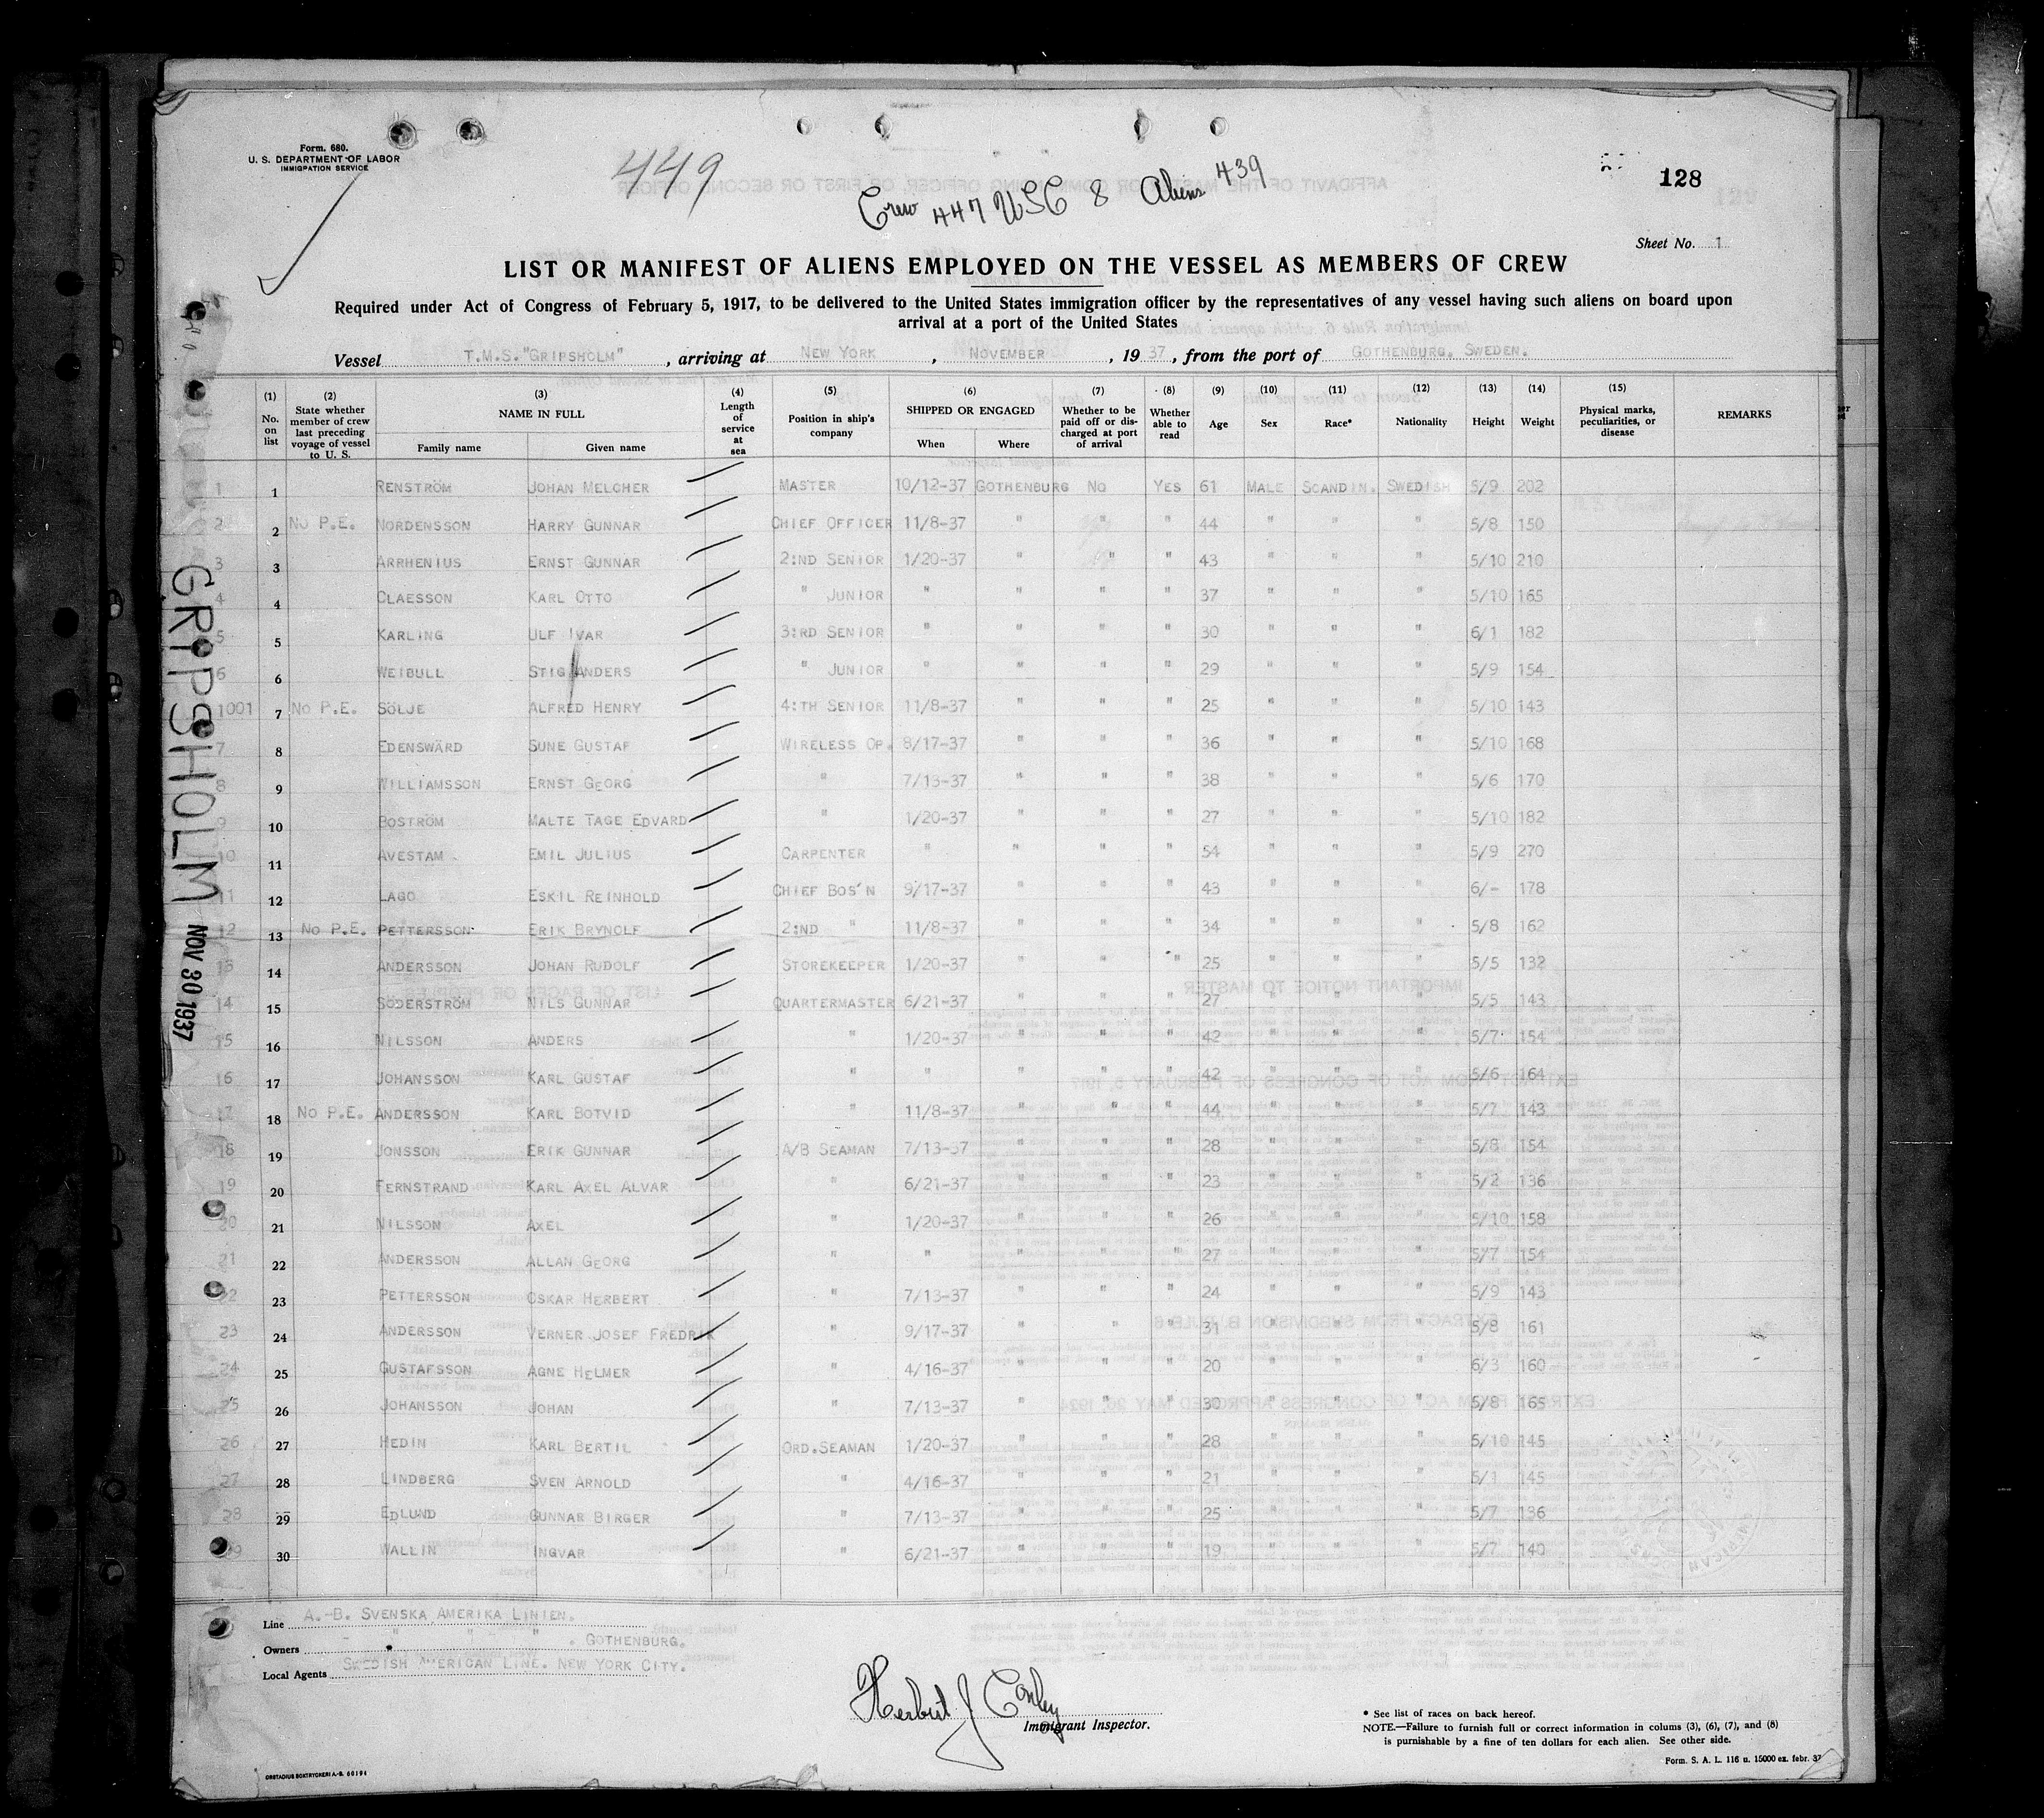 Form. 680.
U. S. DEPARTMENT OF LABOR
IMMIGRATION SERVICE
449
Crew 447 USC 8 Aliens 439
128
Sheet No. 1
LIST OR MANIFEST OF ALIENS EMPLOYED ON THE VESSEL AS MEMBERS OF CREW
Required under Act of Congress of February 5, 1917, to be delivered to the United States immigration officer by the representatives of any vessel having such aliens on board upon
arrival at a port of the United States
Vessel T.M.S. "GRIPSHOLM", arriving at NEW YORK, NOVEMBER, 1937, from the port of GOTHENBURG. SWEDEN.
(1) No. on list (2) State whether member of crew last preceding voyage of vessel to U. S. (3) NAME IN FULL Family name Given name (4) Length of service at sea (5) Position in ship's company (6) SHIPPED OR ENGAGED When Where (7) Whether to be paid off or discharged at port of arrival (8) Whether able to read (9) Age (10) Sex (11) Race* (12) Nationality (13) Height (14) Weight (15) Physical marks, peculiarities, or disease REMARKS
1 1 RENSTRÖM JOHAN MELCHER MASTER 10/12-37 GOTHENBURG NO YES 61 MALE SCANDIN. SWEDISH 5/9 202
2 2 NO P.E. NORDENSSON HARRY GUNNAR CHIEF OFFICER 11/8-37 " " " 44 " " " 5/8 150
3 3 ARRHENIUS ERNST GUNNAR 2:ND SENIOR 1/20-37 " " " 43 " " " 5/10 210
4 4 CLAESSON KARL OTTO " JUNIOR " " " " 37 " " " 5/10 165
5 5 KARLING ULF IVAR 3:RD SENIOR " " " " 30 " " " 6/1 182
6 6 WEIBULL STIG ANDERS " JUNIOR " " " " 29 " " " 5/9 154
1001 7 NO P.E. SÖLJE ALFRED HENRY 4:TH SENIOR 11/8-37 " " " 25 " " " 5/10 143
7 8 EDENSWÄRD SUNE GUSTAF WIRELESS OP. 8/17-37 " " " 36 " " " 5/10 168
8 9 WILLIAMSSON ERNST GEORG " 7/13-37 " " " 38 " " " 5/6 170
9 10 BOSTRÖM MALTE TAGE EDVARD " 1/20-37 " " " 27 " " " 5/10 182
10 11 AVESTAM EMIL JULIUS CARPENTER " " " " 54 " " " 5/9 270
11 12 LAGO ESKIL REINHOLD CHIEF BOS'N 9/17-37 " " " 43 " " " 6/- 178
12 13 NO P.E. PETTERSSON ERIK BRYNOLF 2:ND " 11/8-37 " " " 34 " " " 5/8 162
13 14 ANDERSSON JOHAN RUDOLF STOREKEEPER 1/20-37 " " " 25 " " " 5/5 132
14 15 SÖDERSTRÖM NILS GUNNAR QUARTERMASTER 6/21-37 " " " 27 " " " 5/5 143
15 16 NILSSON ANDERS " 1/20-37 " " " 42 " " " 5/7 154
16 17 JOHANSSON KARL GUSTAF " " " " " 42 " " " 5/6 164
17 18 NO P.E. ANDERSSON KARL BOTVID " 11/8-37 " " " 44 " " " 5/7 143
18 19 JONSSON ERIK GUNNAR A/B SEAMAN 7/13-37 " " " 28 " " " 5/8 154
19 20 FERNSTRAND KARL AXEL ALVAR " 6/21-37 " " " 23 " " " 5/2 136
20 21 NILSSON AXEL " 1/20-37 " " " 26 " " " 5/10 158
21 22 ANDERSSON ALLAN GEORG " " " " " 27 " " " 5/7 154
22 23 PETTERSSON OSKAR HERBERT " 7/13-37 " " " 24 " " " 5/9 143
23 24 ANDERSSON VERNER JOSEF FREDRIK " 9/17-37 " " " 31 " " " 5/8 161
24 25 GUSTAFSSON AGNE HELMER " 4/16-37 " " " 20 " " " 6/3 160
25 26 JOHANSSON JOHAN " 7/13-37 " " " 30 " " " 5/8 165
26 27 HEDIN KARL BERTIL ORD.SEAMAN 1/20-37 " " " 28 " " " 5/10 145
27 28 LINDBERG SVEN ARNOLD " 4/16-37 " " " 21 " " " 5/1 145
28 29 EDLUND GUNNAR BIRGER " 7/13-37 " " " 25 " " " 5/7 136
29 30 WALLIN INGVAR " 6/21-37 " " " 19 " " " 5/7 140
GRIPSHOLM NOV 30 1937
Line A.-B. SVENSKA AMERIKA LINIEN.
Owners " " " . GOTHENBURG.
Local Agents SWEDISH AMERICAN LINE. NEW YORK CITY.
Herbert J Conley
Immigrant Inspector.
* See list of races on back hereof.
NOTE.—Failure to furnish full or correct information in colums (3), (6), (7), and (8)
is purnishable by a fine of ten dollars for each alien. See other side.
Form. S. A. L. 116 u. 15000 ex. febr. 37
ORSTADIUS BOKTRYCKERI A.-B. 60194